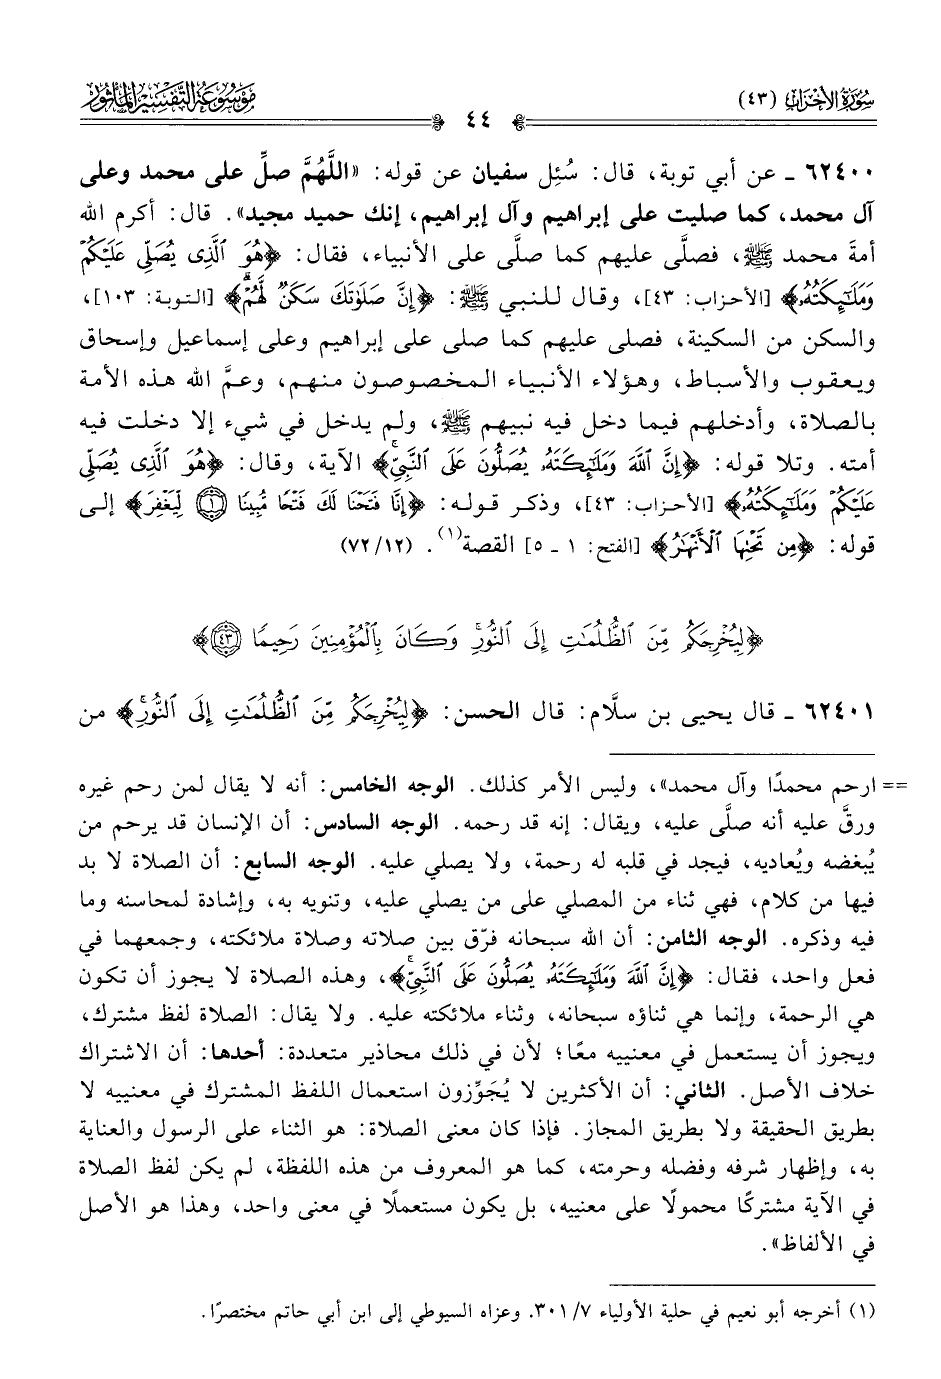 سُورَةُ الأَحْزَابِ (٤٣)
٤٤
مَوْسُوعَةُ التَّفْسِيرِ المَأْثُورِ
٦٢٤٠٠ ـ عن أبي توبة، قال: سُئِل سفيان عن قوله: «اللَّهُمَّ صلِّ على محمد وعلى
آل محمد، كما صليت على إبراهيم وآل إبراهيم، إنك حميد مجيد». قال: أكرم الله
أمةَ محمد ﷺ، فصلَّى عليهم كما صلى على الأنبياء، فقال: ﴿هُوَ ٱلَّذِى يُصَلِّى عَلَيۡكُمۡ
وَمَلَـٰٓئِكَتُهُۥ﴾ [الأحزاب: ٤٣]، وقال للنبي ﷺ: ﴿إِنَّ صَلَوٰتَكَ سَكَنٌ لَّهُمۡۗ﴾ [التوبة: ١٠٣]،
والسكن من السكينة، فصلى عليهم كما صلى على إبراهيم وعلى إسماعيل وإسحاق
ويعقوب والأسباط، وهؤلاء الأنبياء المخصوصون منهم، وعمَّ الله هذه الأمة
بالصلاة، وأدخلهم فيما دخل فيه نبيهم ﷺ، ولم يدخل في شيء إلا دخلت فيه
أمته. وتلا قوله: ﴿إِنَّ ٱللَّهَ وَمَلَـٰٓئِكَتَهُۥ يُصَلُّونَ عَلَى ٱلنَّبِىِّۚ﴾ الآية، وقال: ﴿هُوَ ٱلَّذِى يُصَلِّى
عَلَيۡكُمۡ وَمَلَـٰٓئِكَتُهُۥ﴾ [الأحزاب: ٤٣]، وذكر قوله: ﴿إِنَّا فَتَحۡنَا لَكَ فَتۡحًا مُّبِينًا ١ لِّيَغۡفِرَ﴾ إلى
قوله: ﴿مِن تَحۡتِهَا ٱلۡأَنۡهَـٰرُ﴾ [الفتح: ١ ـ ٥] القصة(١). (١٢/ ٧٢)
﴿لِيُخۡرِجَكُم مِّنَ ٱلظُّلُمَـٰتِ إِلَى ٱلنُّورِۚ وَكَانَ بِٱلۡمُؤۡمِنِينَ رَحِيمًا ٤٣﴾
٦٢٤٠١ ـ قال يحيى بن سلَّام: قال الحسن: ﴿لِيُخۡرِجَكُم مِّنَ ٱلظُّلُمَـٰتِ إِلَى ٱلنُّورِۚ﴾ من
== ارحم محمدًا وآل محمد»، وليس الأمر كذلك. الوجه الخامس: أنه لا يقال لمن رحم غيره
ورقَّ عليه أنه صلَّى عليه، ويقال: إنه قد رحمه. الوجه السادس: أن الإنسان قد يرحم من
يُبغضه ويُعاديه، فيجد في قلبه له رحمة، ولا يصلي عليه. الوجه السابع: أن الصلاة لا بد
فيها من كلام، فهي ثناء من المصلي على من يصلي عليه، وتنويه به، وإشادة لمحاسنه وما
فيه وذكره. الوجه الثامن: أن الله سبحانه فرّق بين صلاته وصلاة ملائكته، وجمعهما في
فعل واحد، فقال: ﴿إِنَّ ٱللَّهَ وَمَلَـٰٓئِكَتَهُۥ يُصَلُّونَ عَلَى ٱلنَّبِىِّۚ﴾، وهذه الصلاة لا يجوز أن تكون
هي الرحمة، وإنما هي ثناؤه سبحانه، وثناء ملائكته عليه. ولا يقال: الصلاة لفظ مشترك،
ويجوز أن يستعمل في معنييه معًا؛ لأن في ذلك محاذير متعددة: أحدها: أن الاشتراك
خلاف الأصل. الثاني: أن الأكثرين لا يُجَوِّزون استعمال اللفظ المشترك في معنييه لا
بطريق الحقيقة ولا بطريق المجاز. فإذا كان معنى الصلاة: هو الثناء على الرسول والعناية
به، وإظهار شرفه وفضله وحرمته، كما هو المعروف من هذه اللفظة، لم يكن لفظ الصلاة
في الآية مشتركًا محمولًا على معنييه، بل يكون مستعملًا في معنى واحد، وهذا هو الأصل
في الألفاظ».
(١) أخرجه أبو نعيم في حلية الأولياء ٧/ ٣٠١. وعزاه السيوطي إلى ابن أبي حاتم مختصرًا.